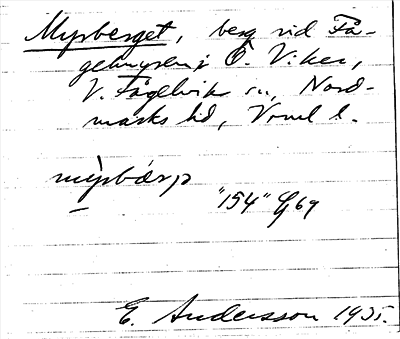 Myrberget, berg vid Få-
gelmyren i Ö. Viker,
V. Fågelvik sn, Nord-
marks hd, Vrml l.
myrbärj
"154" G 69
E. Andersson 1935.